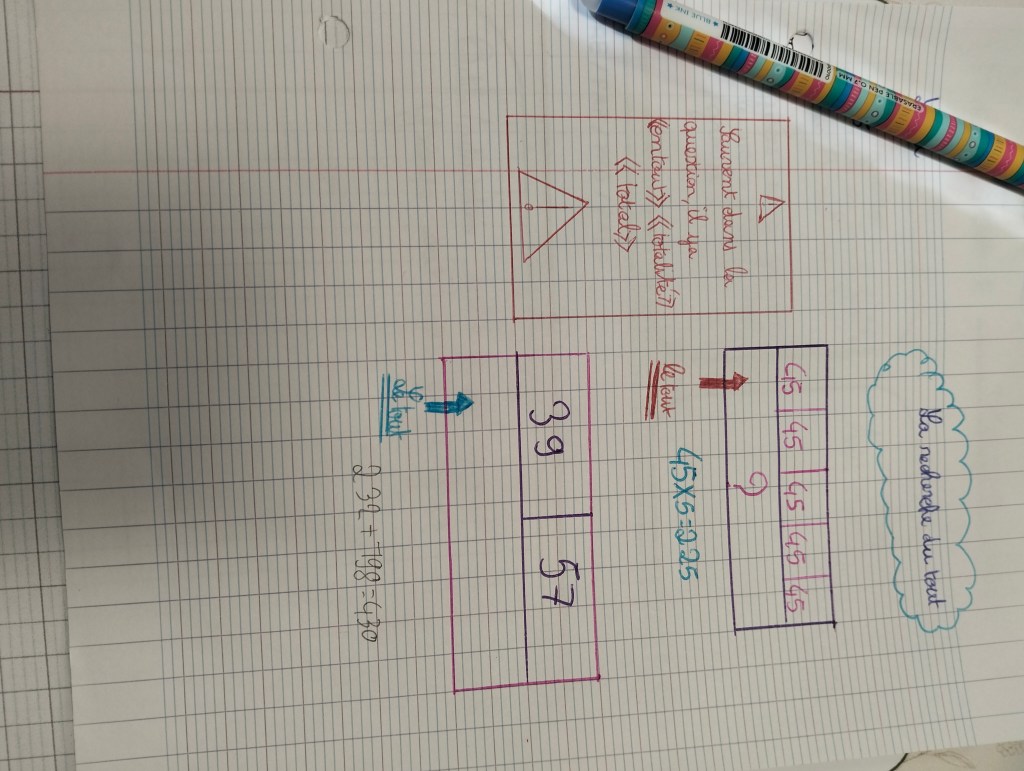 La recherche du tout
45 45 45 45 45
?
le tout
45×5=225
39 57
le tout
232+198=430
⚠
Souvent dans la
question, il ya
«entout» «totalité»
«total»
ERASABLE PEN 0.7 MM
BLUE INK